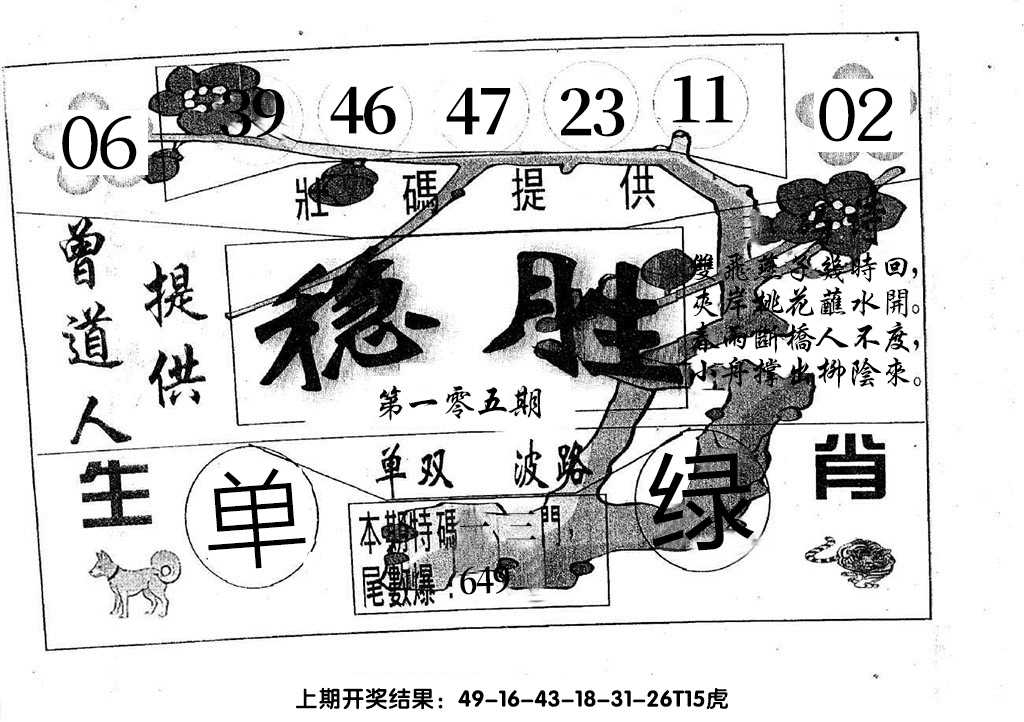 06 39 46 47 23 11 02
壯碼提供
曾道人
提供
稳胜
第一零五期
雙飛燕子幾時回，
夾岸桃花蘸水開。
春雨斷橋人不度，
小舟撐出柳陰來。
单双 波路
生肖
单
绿
本期特碼一、三門，
尾數爆：649
上期开奖结果：49-16-43-18-31-26T15虎